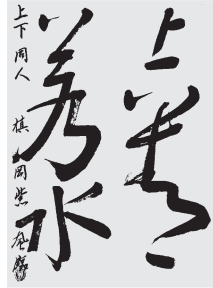 上善
若水
上下同人 棋 岡紫